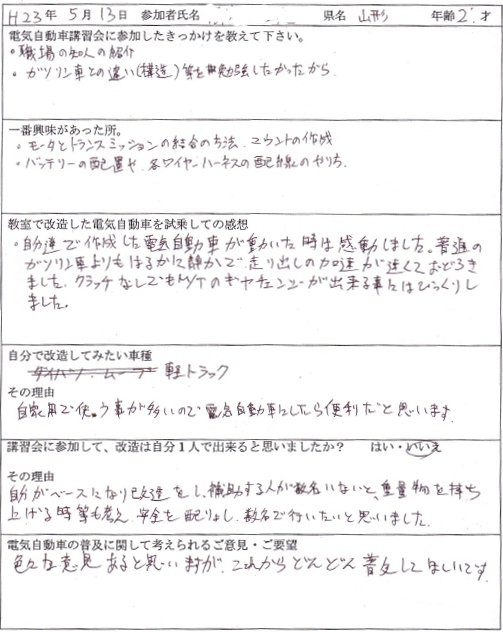 H23年 5月13日 参加者氏名 県名 山形 年齢2 才
電気自動車講習会に参加したきっかけを教えて下さい。
・職場の知人の紹介
・ガソリン車との違い(構造)等を勉強したかったから
一番興味があった所。
・モータとトランスミッションの結合の方法、マウントの作成
・バッテリーの配置や、各ワイヤーハーネスの配線のやり方
教室で改造した電気自動車を試乗しての感想
・自達で作成した電気自動車が動いた時は感動しました。普通の
ガソリン車よりもはるかに静かで、走り出しの加速が速くておどろき
ました。クラッチなしでもM/Tのギヤチェンジが出来る事にはびっくりし
ました。
自分で改造してみたい車種
ダイハツ・ムーブ 軽トラック
その理由
自家用で使う事が多いので電気自動車にしたら便利だと思います
講習会に参加して、改造は自分1人で出来ると思いましたか? はい・いいえ
その理由
自分がベースになり改造をし、補助する人が数名いないと、重量物を持ち
上げる時等も考え、安全を配りょし、数名で行いたいと思いました。
電気自動車の普及に関して考えられるご意見・ご要望
色々な意見あると思いますが、これからどんどん普及してほしいです